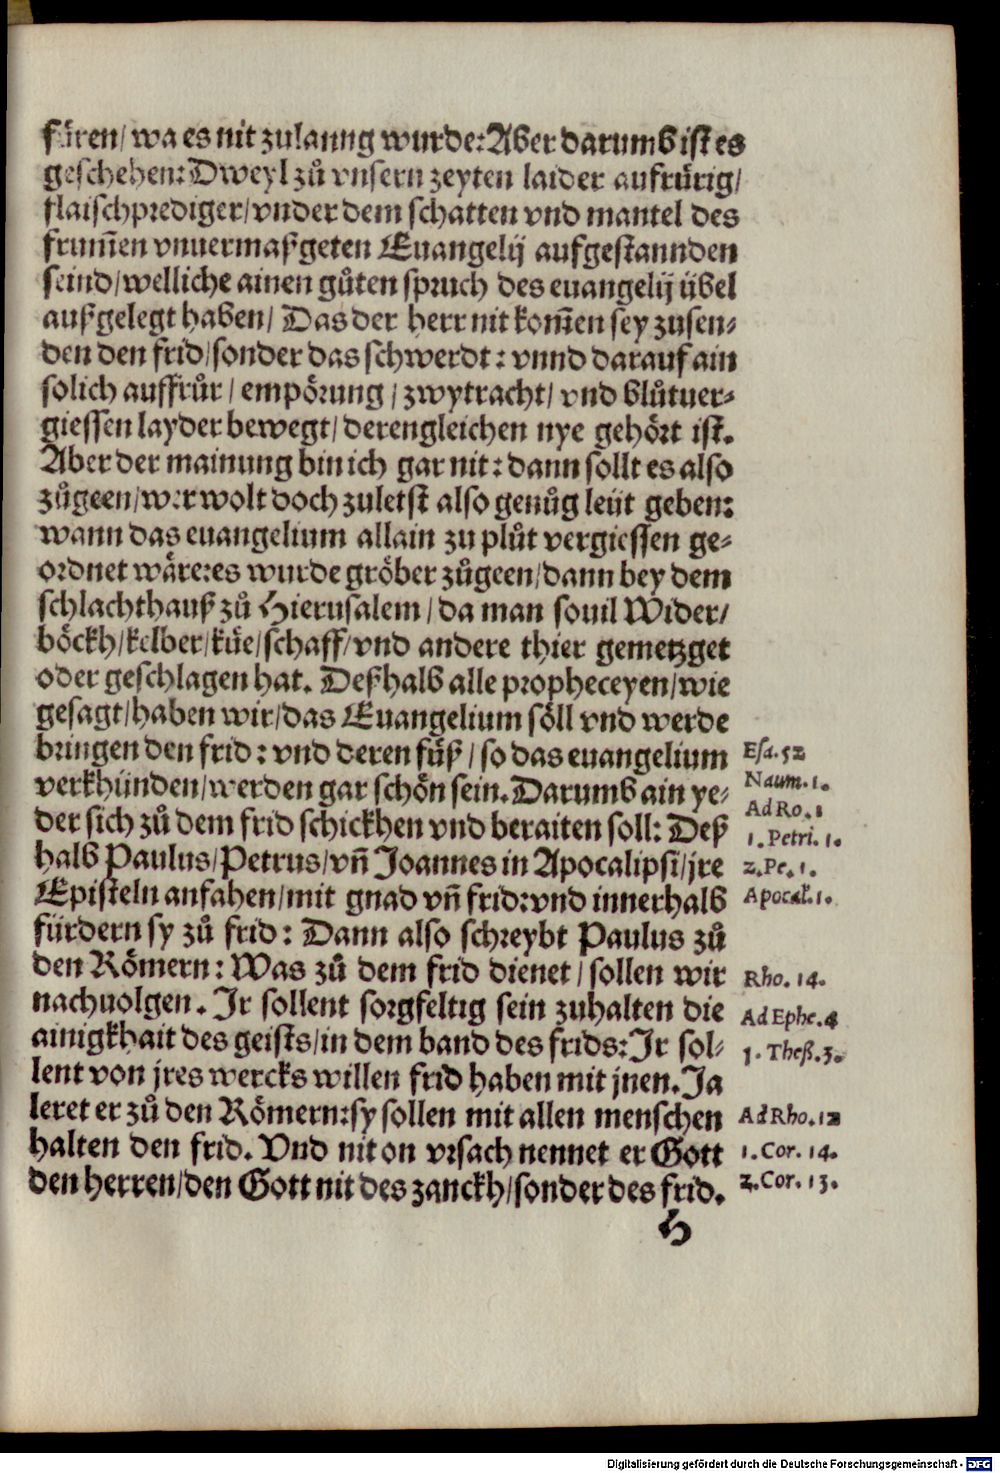 füren/ wa es nit zulaung wurde: Aber darumb ist es
geschehen: Dweyl zů vnsern zeyten laider aufrürig/
flaischprediger/ vnder dem schatten vnd mantel des
frum̃en vnuermaßgeten Euangelij aufgestannden
seind/ welliche ainen gůten spruch des euangelij übel
außgelegt haben/ Das der herr nit kom̃en sey zusen⸗
den den frid/ sonder das schwerdt: vnnd darauf ain
solich auffrůr/ empörung/ zwytracht/ vnd blůtuer⸗
giessen layder bewegt/ derengleichen nye gehört ist.
Aber der mainung bin ich gar nit: dann sollt es also
zůgeen/ wer wolt doch zuletst also genůg leüt geben:
wann das euangelium allain zu plůt vergiessen ge⸗
ordnet wäre: es wurde gröber zůgeen/ dann bey dem
schlachthauß zů Hierusalem/ da man souil Wider/
böckh/ kelber/ küe/ schaff/ vnd andere thier gemetzget
oder geschlagen hat. Deßhalb alle propheceyen/ wie
gesagt/ haben wir/ das Euangelium söll vnd werde
bringen den frid: vnd deren füß/ so das euangelium
verkhünden/ werden gar schön sein. Darumb ain ye⸗
der sich zů dem frid schickhen vnd beraiten soll: Deß
halb Paulus/ Petrus/ vñ Joannes in Apocalipsi/ jre
Episteln anfahen/ mit gnad vñ frid: vnd innerhalb
fürdern sy zů frid: Dann also schreybt Paulus zů
den Römern: Was zů dem frid dienet/ sollen wir
nachuolgen. Jr sollent sorgfeltig sein zuhalten die
ainigkhait des geists/ in dem band des frids: Jr sol⸗
lent von jres wercks willen frid haben mit jnen. Ja
leret er zů den Römern: sy sollen mit allen menschen
halten den frid. Vnd nit on vrsach nennet er Gott
den herren/ den Gott nit des zanckh/ sonder des frid.
H
Esa. 52
Naum. 1.
Ad Ro. 1
1. Petri. 1.
2. Pe. 1.
Apocal. 1.
Rho. 14.
Ad Ephe. 4
1. Theß. 5.
Ad Rho. 12
1. Cor. 14.
2. Cor. 13.
Digitalisierung gefördert durch die Deutsche Forschungsgemeinschaft - DFG